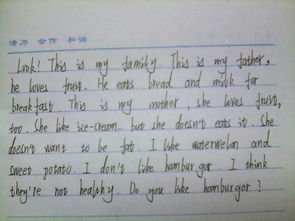 活力 合作 和谐
Look! This is my family. This is my father,
he loves fruit. He eats bread and milk for
breakfast. This is my mother, she loves fruit,
too. She like ice-cream. but she doesn't eats it. She
doesn't want to be fat. I like watermelan and
sweet potato. I don't like hamburger. I think
they're not healthy. Do you like hamburger?